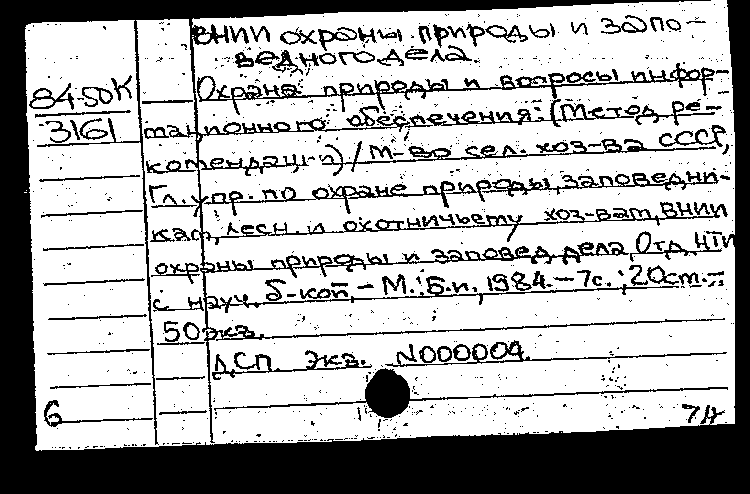 ВНИИ охраны природы и запо-
ведного дела.
84-50К
3161
Охрана природы и вопросы инфор-
мационного обеспечения: (Метод. ре-
комендации) / М-во сел. хоз-ва СССР,
Гл. упр. по охране природы, заповедни-
кам, лесн. и охотничьему хоз-вам, ВНИИ
охраны природы и заповед. дела, Отд. НТИ
с науч. б-кой, - М.: Б.и., 1984. - 7с.; 20см. -
50 экз.
ДСП. Экз. N000004.
6